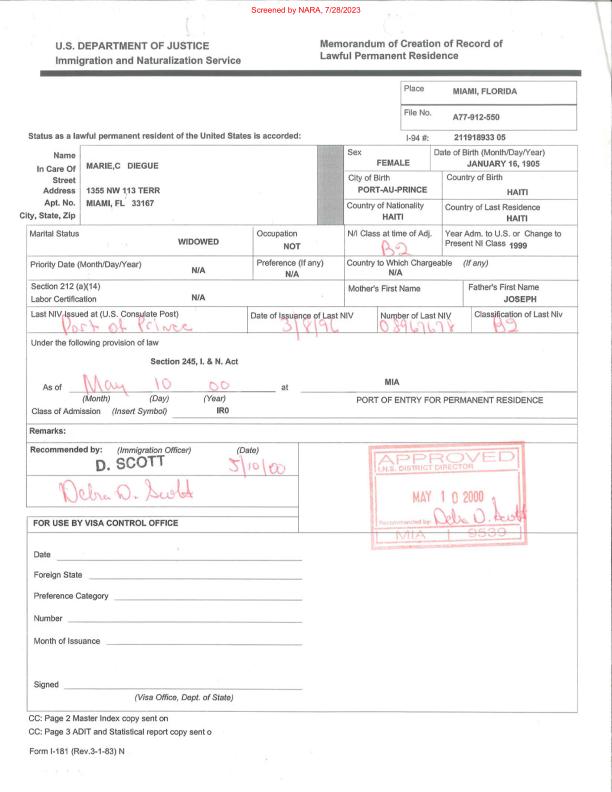 Screened by NARA, 7/28/2023
U.S. DEPARTMENT OF JUSTICE
Immigration and Naturalization Service
Memorandum of Creation of Record of
Lawful Permanent Residence
Place MIAMI, FLORIDA
File No. A77-912-550
Status as a lawful permanent resident of the United States is accorded:
I-94 #: 211918933 05
Name MARIE,C DIEGUE
In Care Of
Street
Address 1355 NW 113 TERR
Apt. No. MIAMI, FL 33167
City, State, Zip
Sex FEMALE
Date of Birth (Month/Day/Year) JANUARY 16, 1905
City of Birth PORT-AU-PRINCE
Country of Birth HAITI
Country of Nationality HAITI
Country of Last Residence HAITI
Marital Status WIDOWED
Occupation NOT
N/I Class at time of Adj. B2
Year Adm. to U.S. or Change to
Present NI Class 1999
Priority Date (Month/Day/Year) N/A
Preference (If any) N/A
Country to Which Chargeable (If any) N/A
Section 212 (a)(14)
Labor Certification N/A
Mother's First Name
Father's First Name JOSEPH
Last NIV Issued at (U.S. Consulate Post) Port of Prince
Date of Issuance of Last NIV 3/8/96
Number of Last NIV
Classification of Last Niv B2
Under the following provision of law
Section 245, I. & N. Act
As of May 10 00 at MIA
(Month) (Day) (Year) PORT OF ENTRY FOR PERMANENT RESIDENCE
Class of Admission (Insert Symbol) IR0
Remarks:
Recommended by: (Immigration Officer) (Date)
D. SCOTT 5/10/00
Debra D. Scott
APPROVED
I.N.S. DISTRICT DIRECTOR
MAY 10 2000
Recommended by: Debra D. Scott
MIA 9539
FOR USE BY VISA CONTROL OFFICE
Date
Foreign State
Preference Category
Number
Month of Issuance
Signed
(Visa Office, Dept. of State)
CC: Page 2 Master Index copy sent on
CC: Page 3 ADIT and Statistical report copy sent o
Form I-181 (Rev.3-1-83) N